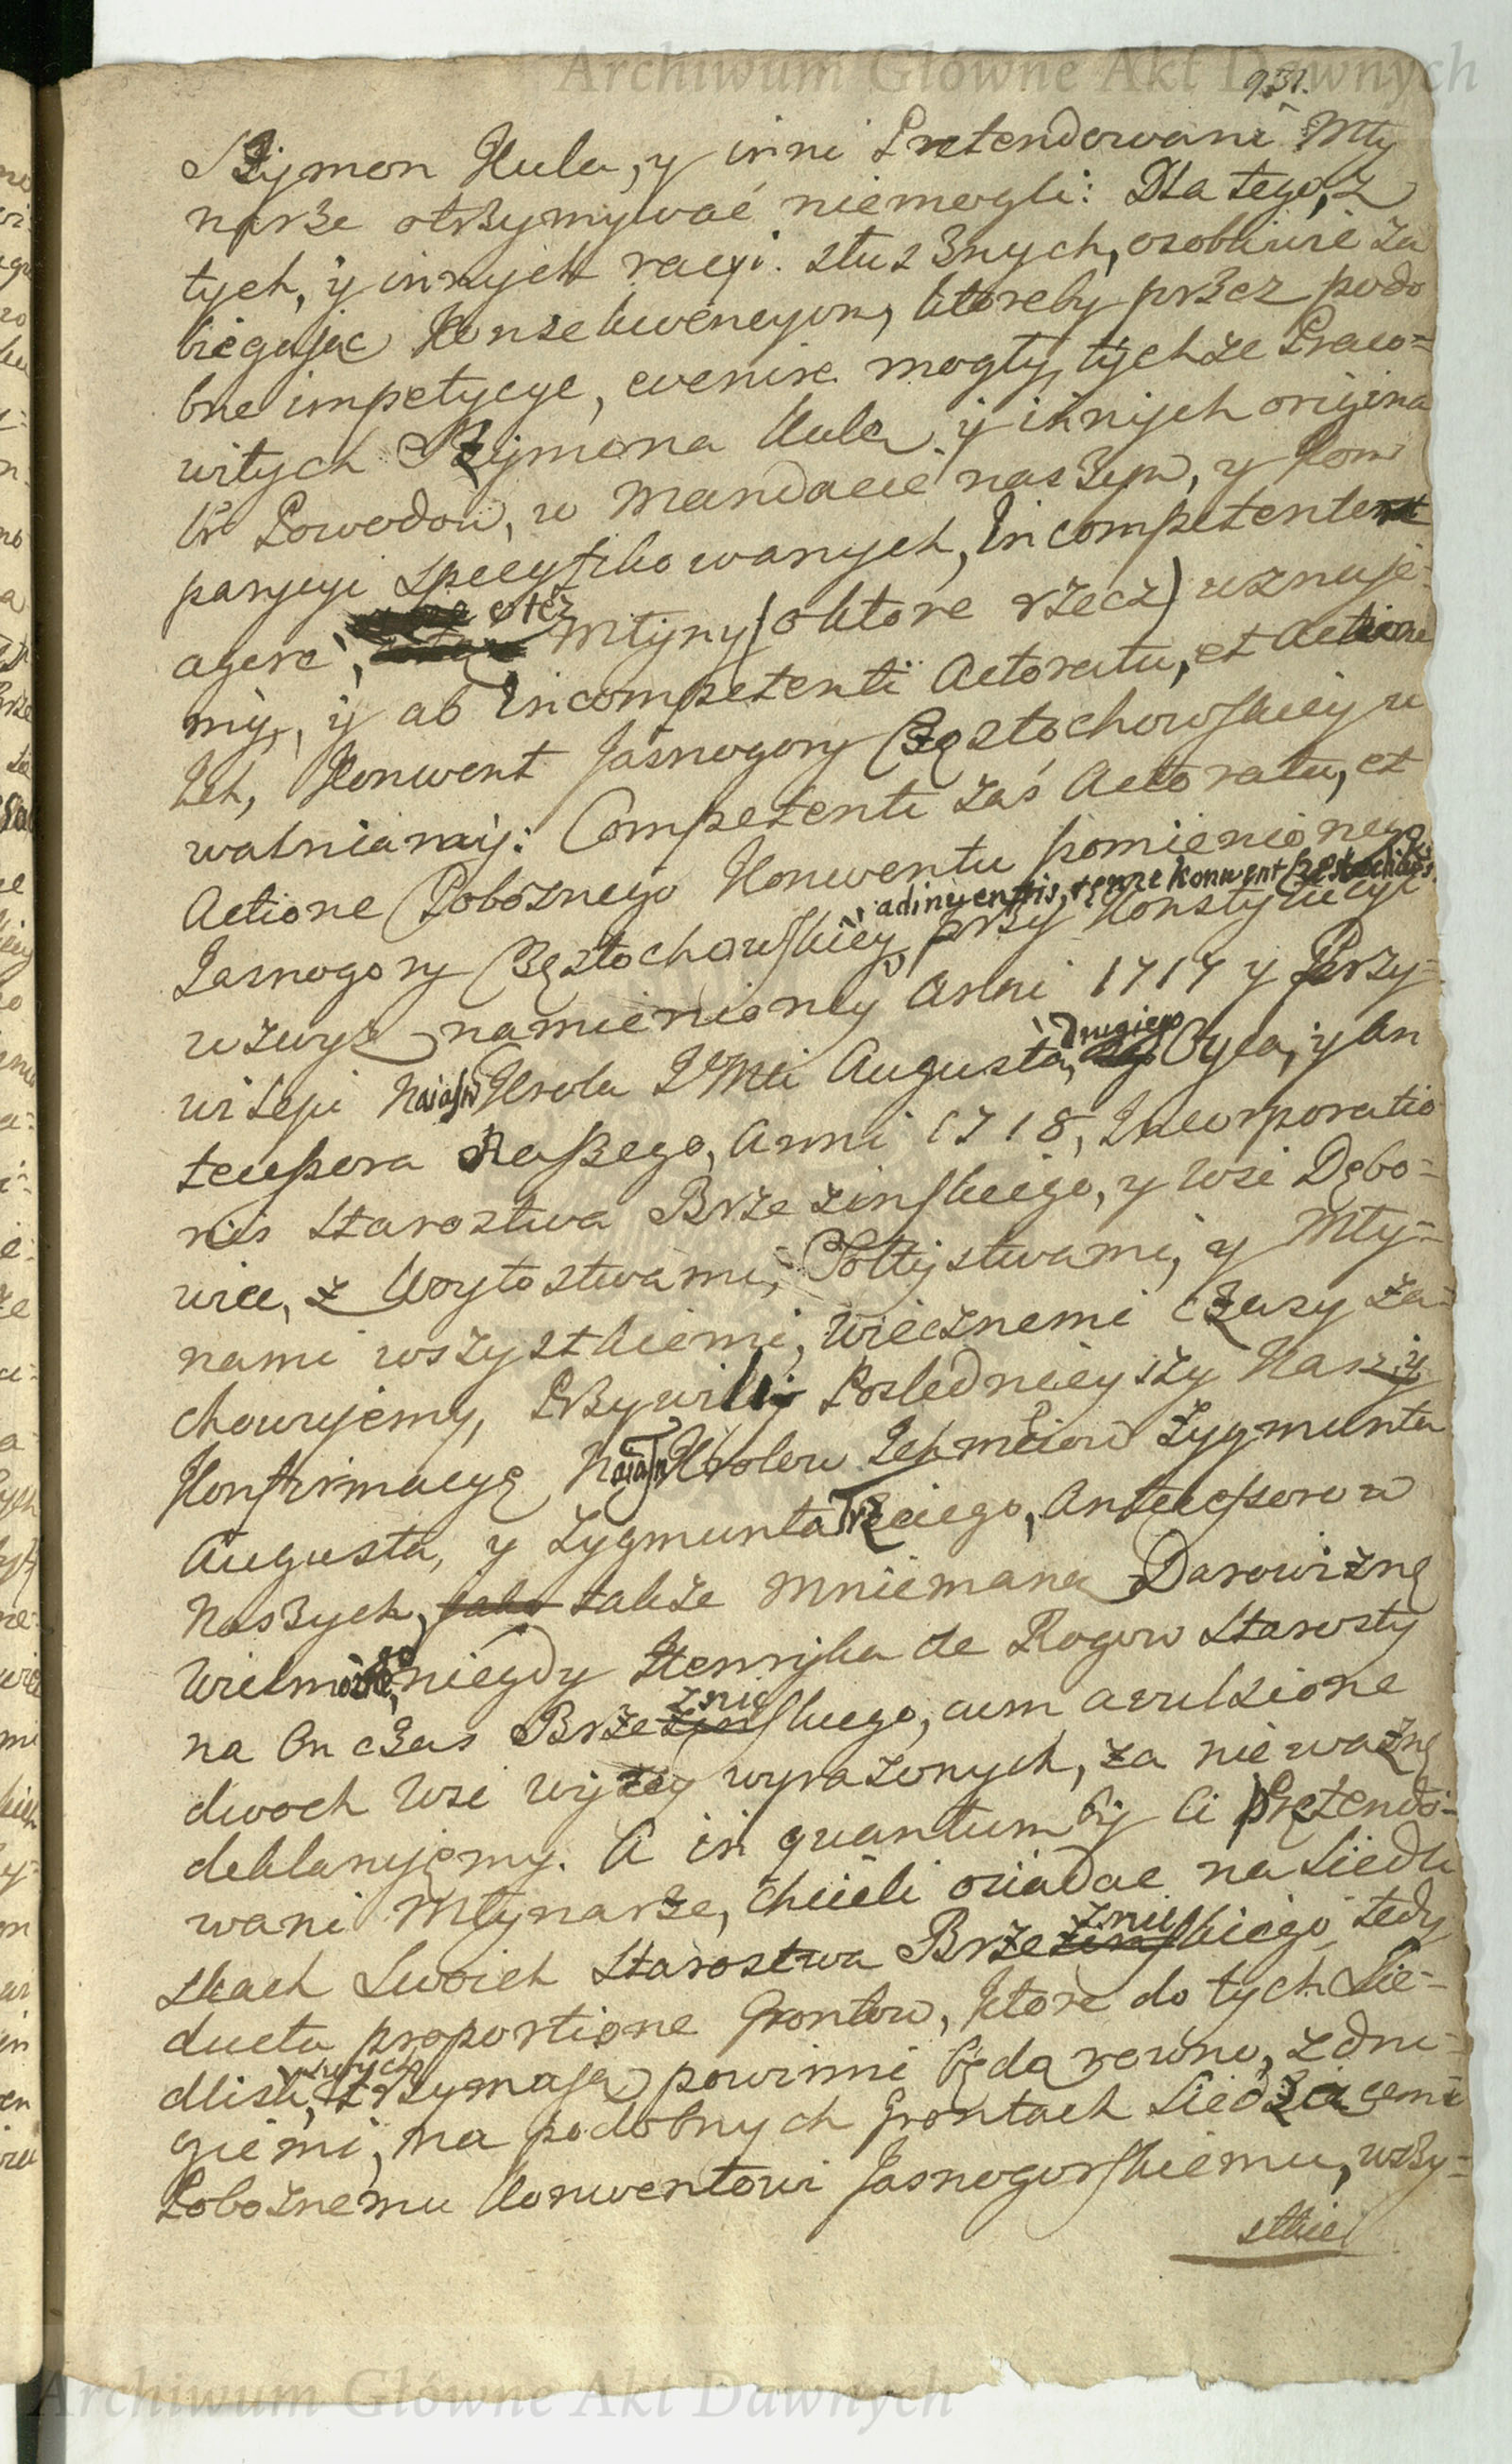 Archiwum Główne Akt Dawnych
931.
Szymon Kula, y inni Pretendowani Mły
narze otrzymywać niemogli: Dla tego, z
tych, y innych racyi słusznych, osobliwie za
biegając Konsekwencyom, ktoreby przez podo
bne impetycye, evenire mogły, tychże Praco=
witych Szymona Kula y innych origina
ln Powodow, w Mandacie naszym, y Kom
parycyi specyfikowanych, Incompetenter
agere, o też Młyny (o ktore rzecz) uznaje=
my, y ab Incompetenti Actoratu, et Actione
Ich, Konwent Jasnogory Częstochowskiey u
walniamy: Competenti zaś Actoratu, et
Actione Pobożnego Konwentu pomienionego
adinventis, tenze Konwent
Jasnogory Częstochowskiey, przy Konstytucyi
wzwyż namienioney Anni 1717 y Przy=
drugiego
wileju Naiaśn Krola JoMci Augusta, Oyca, y An
tecessora Naszego, Anni 1718, Incorporatio
nis Starostwa Brzezinskiego, y wsi Dębo=
wiec, z Woytostwami, Sołtystwami, y Mły=
nami wszystkiemi, wiecznemi czasy za=
chowujemy, Przywiley Poslednieyszy Naszy
Konfirmacyę Naiaśn Krolow Ichmciow Zygmunta
Augusta, y Zygmunta Trzeciego, Antecessorow
Naszych, jako także mniemaną Darowiznę
Wielmożnego, niegdy Henryka de Rogow Starosty
znic
na On czas Brzezinskiego, cum avulsione
dwoch wsi wyżey wyrażonych, za nieważnę
deklarujemy. A in quantum by ci Pretendo=
wani Młynarze, chcieli osiadac na Siedli
znic
skach Swoich Starostwa Brzezinskiego, tedy
ducta proportione Grontow, ktore do tych Sie=
dlisk, trzymają powinni będą rowno, z dru=
giemi, na podobnych Grontach Siedzącemi
Pobożnemu Konwentowi Jasnogorskiemu, wszy=
stkie
Archiwum Główne Akt Dawnych